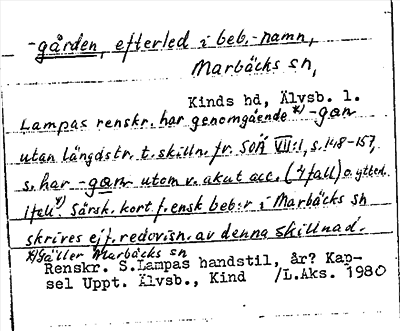 -gården, efterled i beb.-namn,
Marbäcks sn,
Kinds hd, Älvsb. l.
Lampas renskr. har genomgående *) -gaɷn
utan längdstr. t. skilln. fr. SOÄ VII:1, s. 148-157,
s. har -gaɷn utom v. akut acc. (4 fall) o. ytterl.
1 fall *). Särsk. kort f. ensk beb:r i Marbäcks sn
skrives ej f. redovisn. av denna skillnad.
*) Gäller Marbäcks sn
Renskr. S.Lampas handstil, år? Kap-
sel Uppt. Älvsb., Kind /L.Aks. 1980